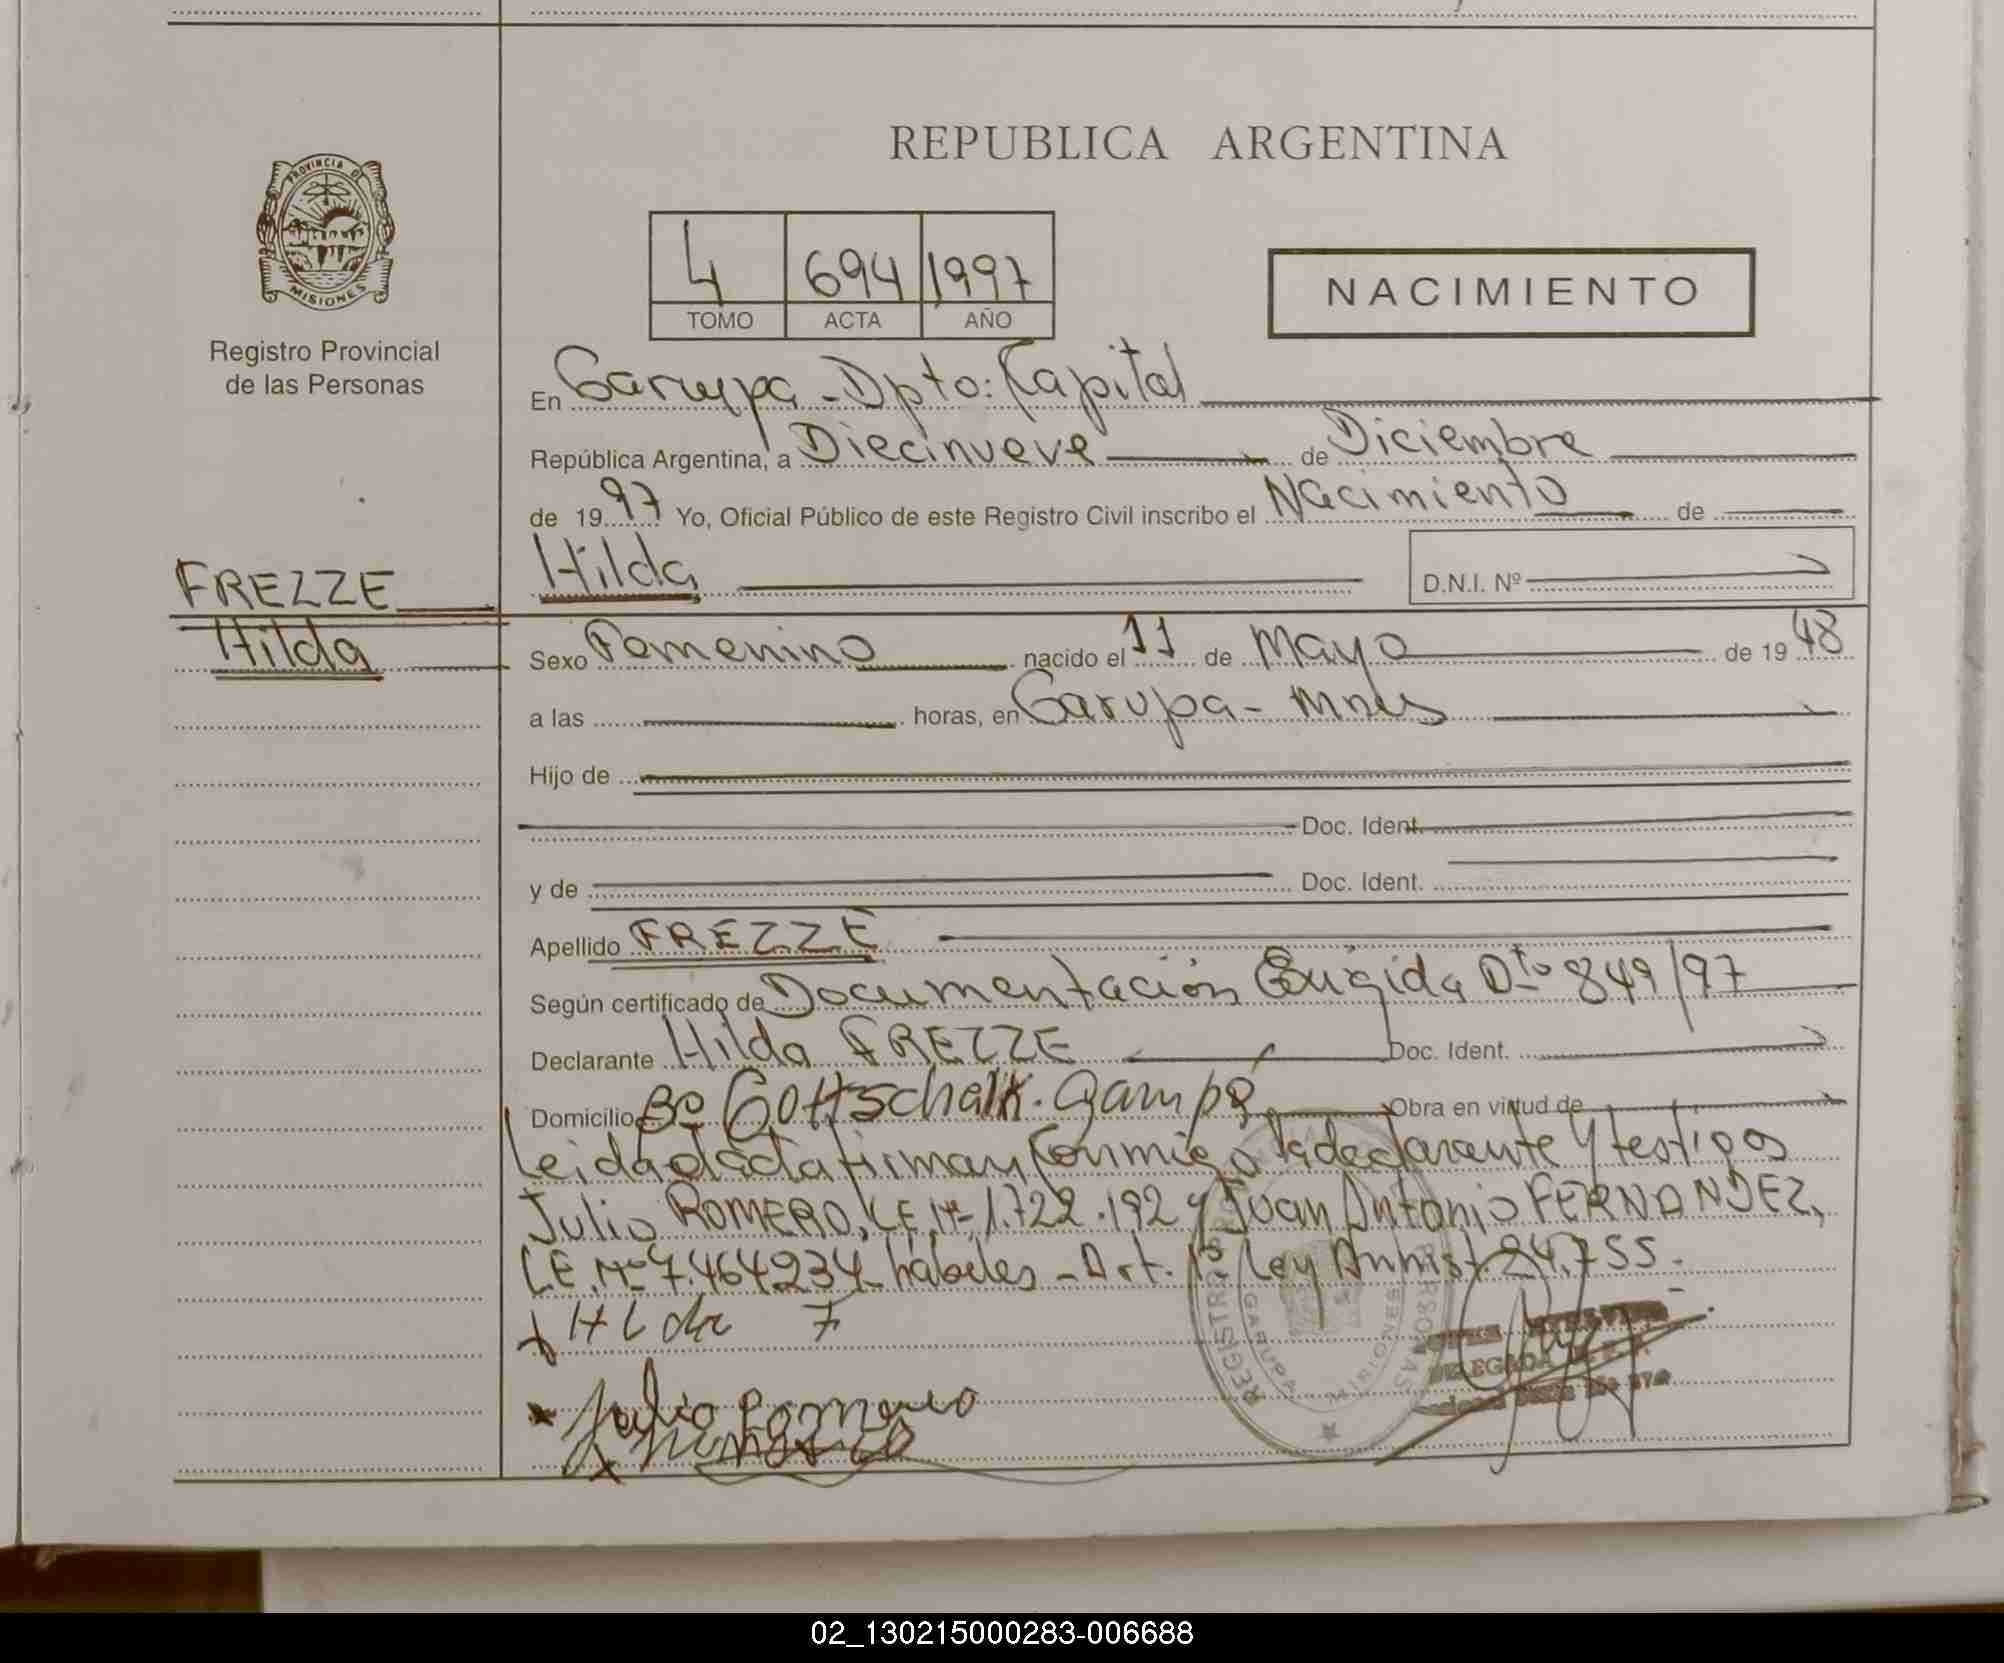 REPUBLICA ARGENTINA
PROVINCIA DE
MISIONES
Registro Provincial
de las Personas
4 694 1997
TOMO ACTA AÑO
NACIMIENTO
En Garupa - Dpto: Capital
República Argentina, a Diecinueve de Diciembre
de 19 97 Yo, Oficial Público de este Registro Civil inscribo el Nacimiento de
Hilda D.N.I. Nº
FREZZE
Hilda
Sexo Femenino nacido el 11 de Mayo de 19 48
a las horas, en Garupa - Mnes
Hijo de
Doc. Ident.
y de Doc. Ident.
Apellido FREZZE
Según certificado de Documentación Exigida Dto 849/97
Declarante Hilda FREZZE Doc. Ident.
Domicilio Bº Gottschalk. Garupá Obra en virtud de
Leida el acta firman conmigo la declarante y testigos
Julio ROMERO, L.E. Nº 1.722.192 y Juan Antonio FERNANDEZ,
L.E. Nº 7.464234 habiles - Art. 1º Ley Amnist. 24.755.-
x Hlda F
x Julio Romero
x
REGISTRO PERSONAS
GARUPA MISIONES
DELEGADA
02_130215000283-006688